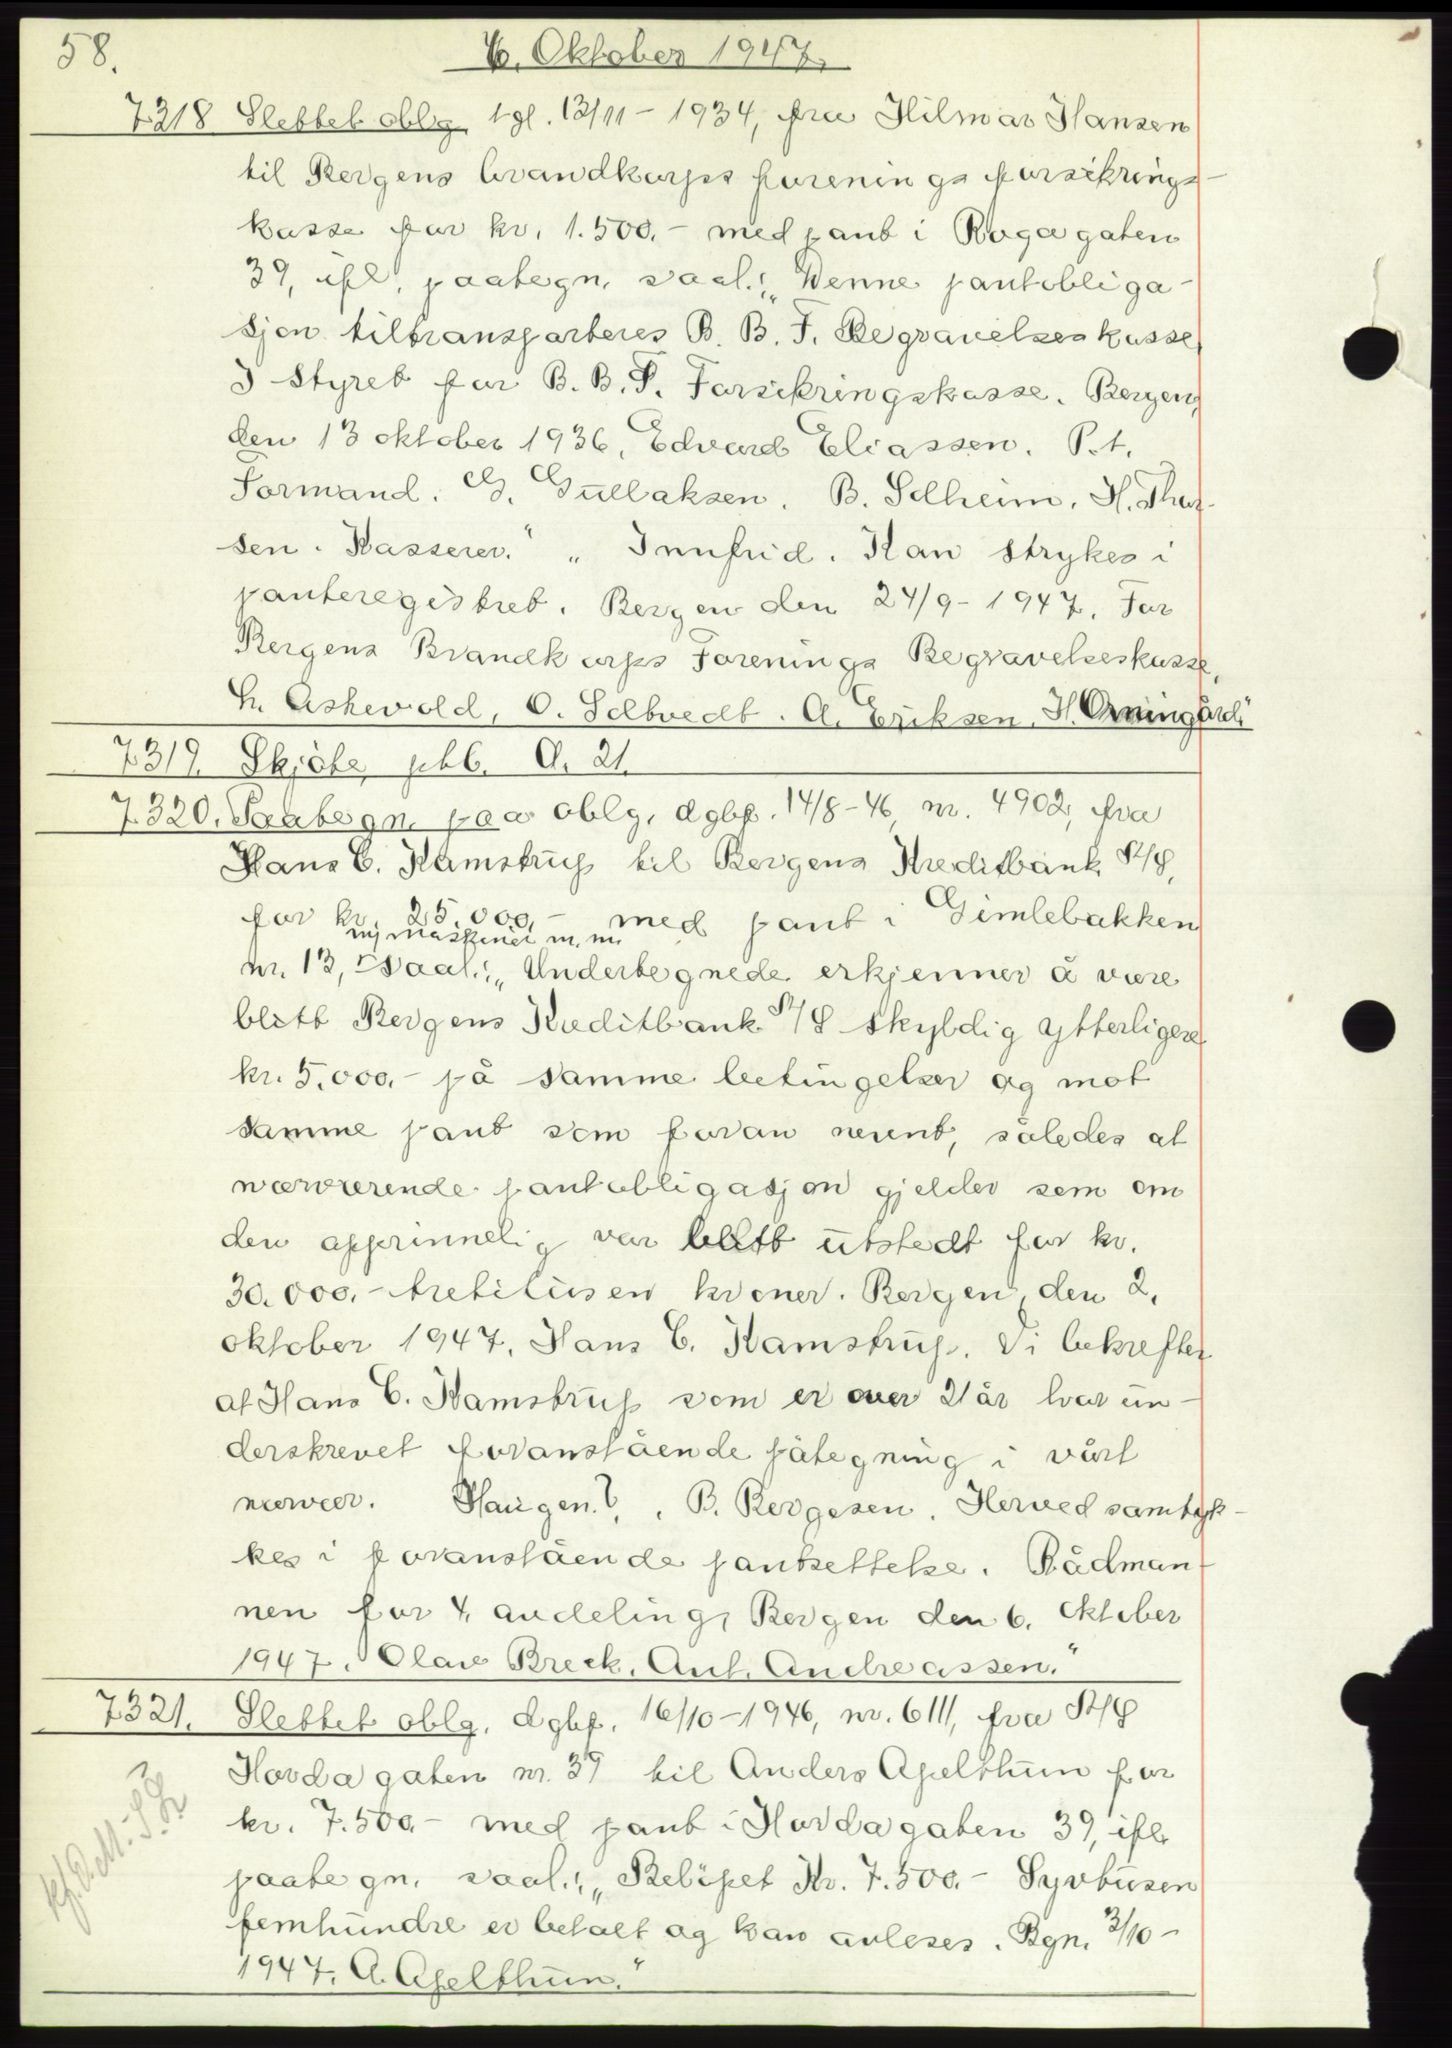 58.
6. Oktober 1947.
7318 Slettet oblg. tgl. 13/11-1934, fra Hilmar Hansen
til Bergens brandkorps forenings forsikrings-
kasse for kr. 1.500.- med pant i Rogagaten
39, ifl. paategn. saal.: „Denne pantobliga-
sjon tiltransporteres B. B. F. Begravelseskasse,
I Styret for B. B. F. Forsikringskasse. Bergen,
den 13 oktober 1936, Edvard Eliassen. P.t.
Formand. G. Gullaksen. B. Solheim. H. Thor-
sen. Kasserer." „Innfrid. Kan strykes i
panteregistret. Bergen den 24/9-1947. For
Bergens Brandkorps Forenings Begravelseskasse,
H. Askevold, O. Soltvedt. A. Eriksen, H.
7319. Skjøte, pkb. A. 21.
7320. Paategn. paa oblg. dgbf. 14/8-46, nr. 4902, fra
Hans C. Kamstrup til Bergens Kreditbank A/S,
for kr. 25.000.- med pant i Gimlebakken
m/ maskiner m.m.
nr. 13, saal.: „Undertegnede erkjenner å være
blitt Bergens Kreditbank A/S skyldig ytterligere
kr. 5.000.- på samme betingelser og mot
samme pant som foran nevnt, således at
nærværende pantobligasjon gjelder som om
den opprinnelig var blitt utstedt for kr.
30.000.- trettitusen kroner. Bergen, den 2.
oktober 1947. Hans C. Kamstrup. Vi bekrefter
at Hans C. Kamstrup som er over 21 år har un-
derskrevet foranstående påtegning i vårt
nærvær. Haugen.?, . B. Bergesen. Herved samtyk-
kes i foranstående pantsettelse. Rådman-
nen for 4. avdeling, Bergen den 6. oktober
1947. Olav Breck. Ant. Andreassen."
7321. Slettet oblg. dgbf. 16/10-1946, nr. 6111, fra A/S
Hordagaten nr. 39 til Anders Apelthun for
kr. 7.500.- med pant i Hordagaten 39, ifl.
paategn. saal.: „Beløpet Kr. 7.500.- Syvtusen
femhundre er betalt og kan avleses. Bgn. 3/10-
1947. A. Apelthun."